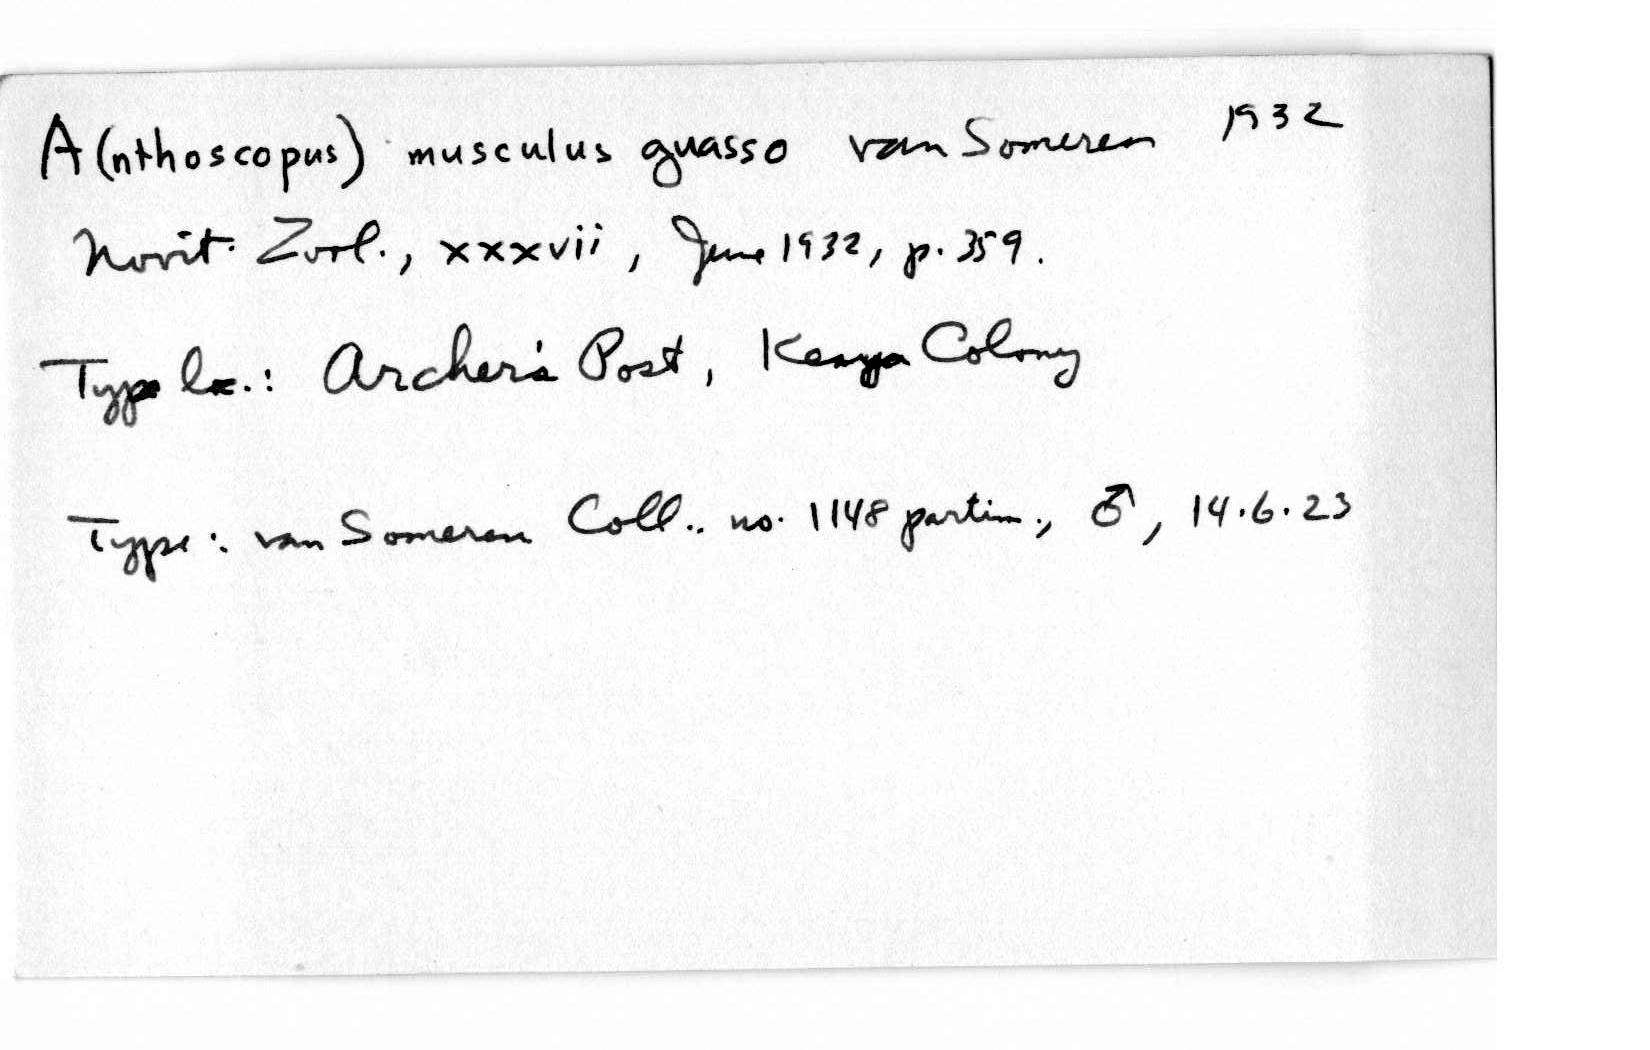 A(nthoscopus) musculus guasso van Someren 1932
Novit. Zool., xxxvii, June 1932, p. 359.
Type loc.: Archer's Post, Kenya Colony
Type: van Someren Coll.. no. 1148 partim., ♂, 14.6.23